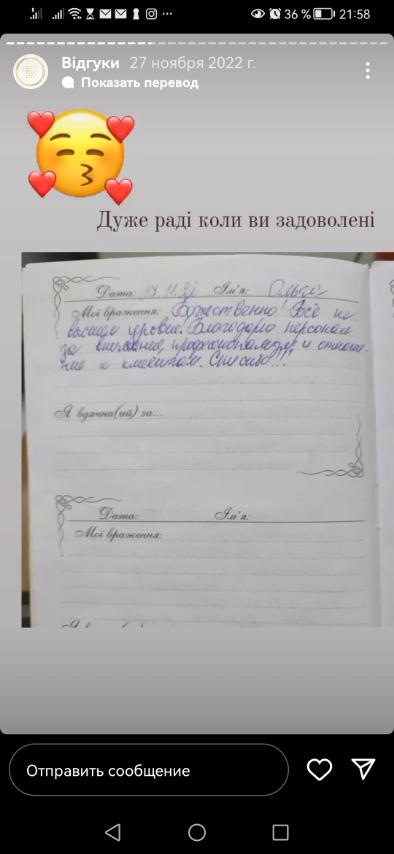 36 % 21:58
Відгуки 27 ноября 2022 г.
Показать перевод
Дуже раді коли ви задоволені
Дата: Ім'я: Ольга
Мої враження: Божественно! Всё на
высшем уровне. Благодарю персонал
за внимание, профессионализм и отноше-
ние к клиентам. Спасибо!!!
Я вдячна(ий) за...
Дата: Ім'я:
Мої враження:
Отправить сообщение